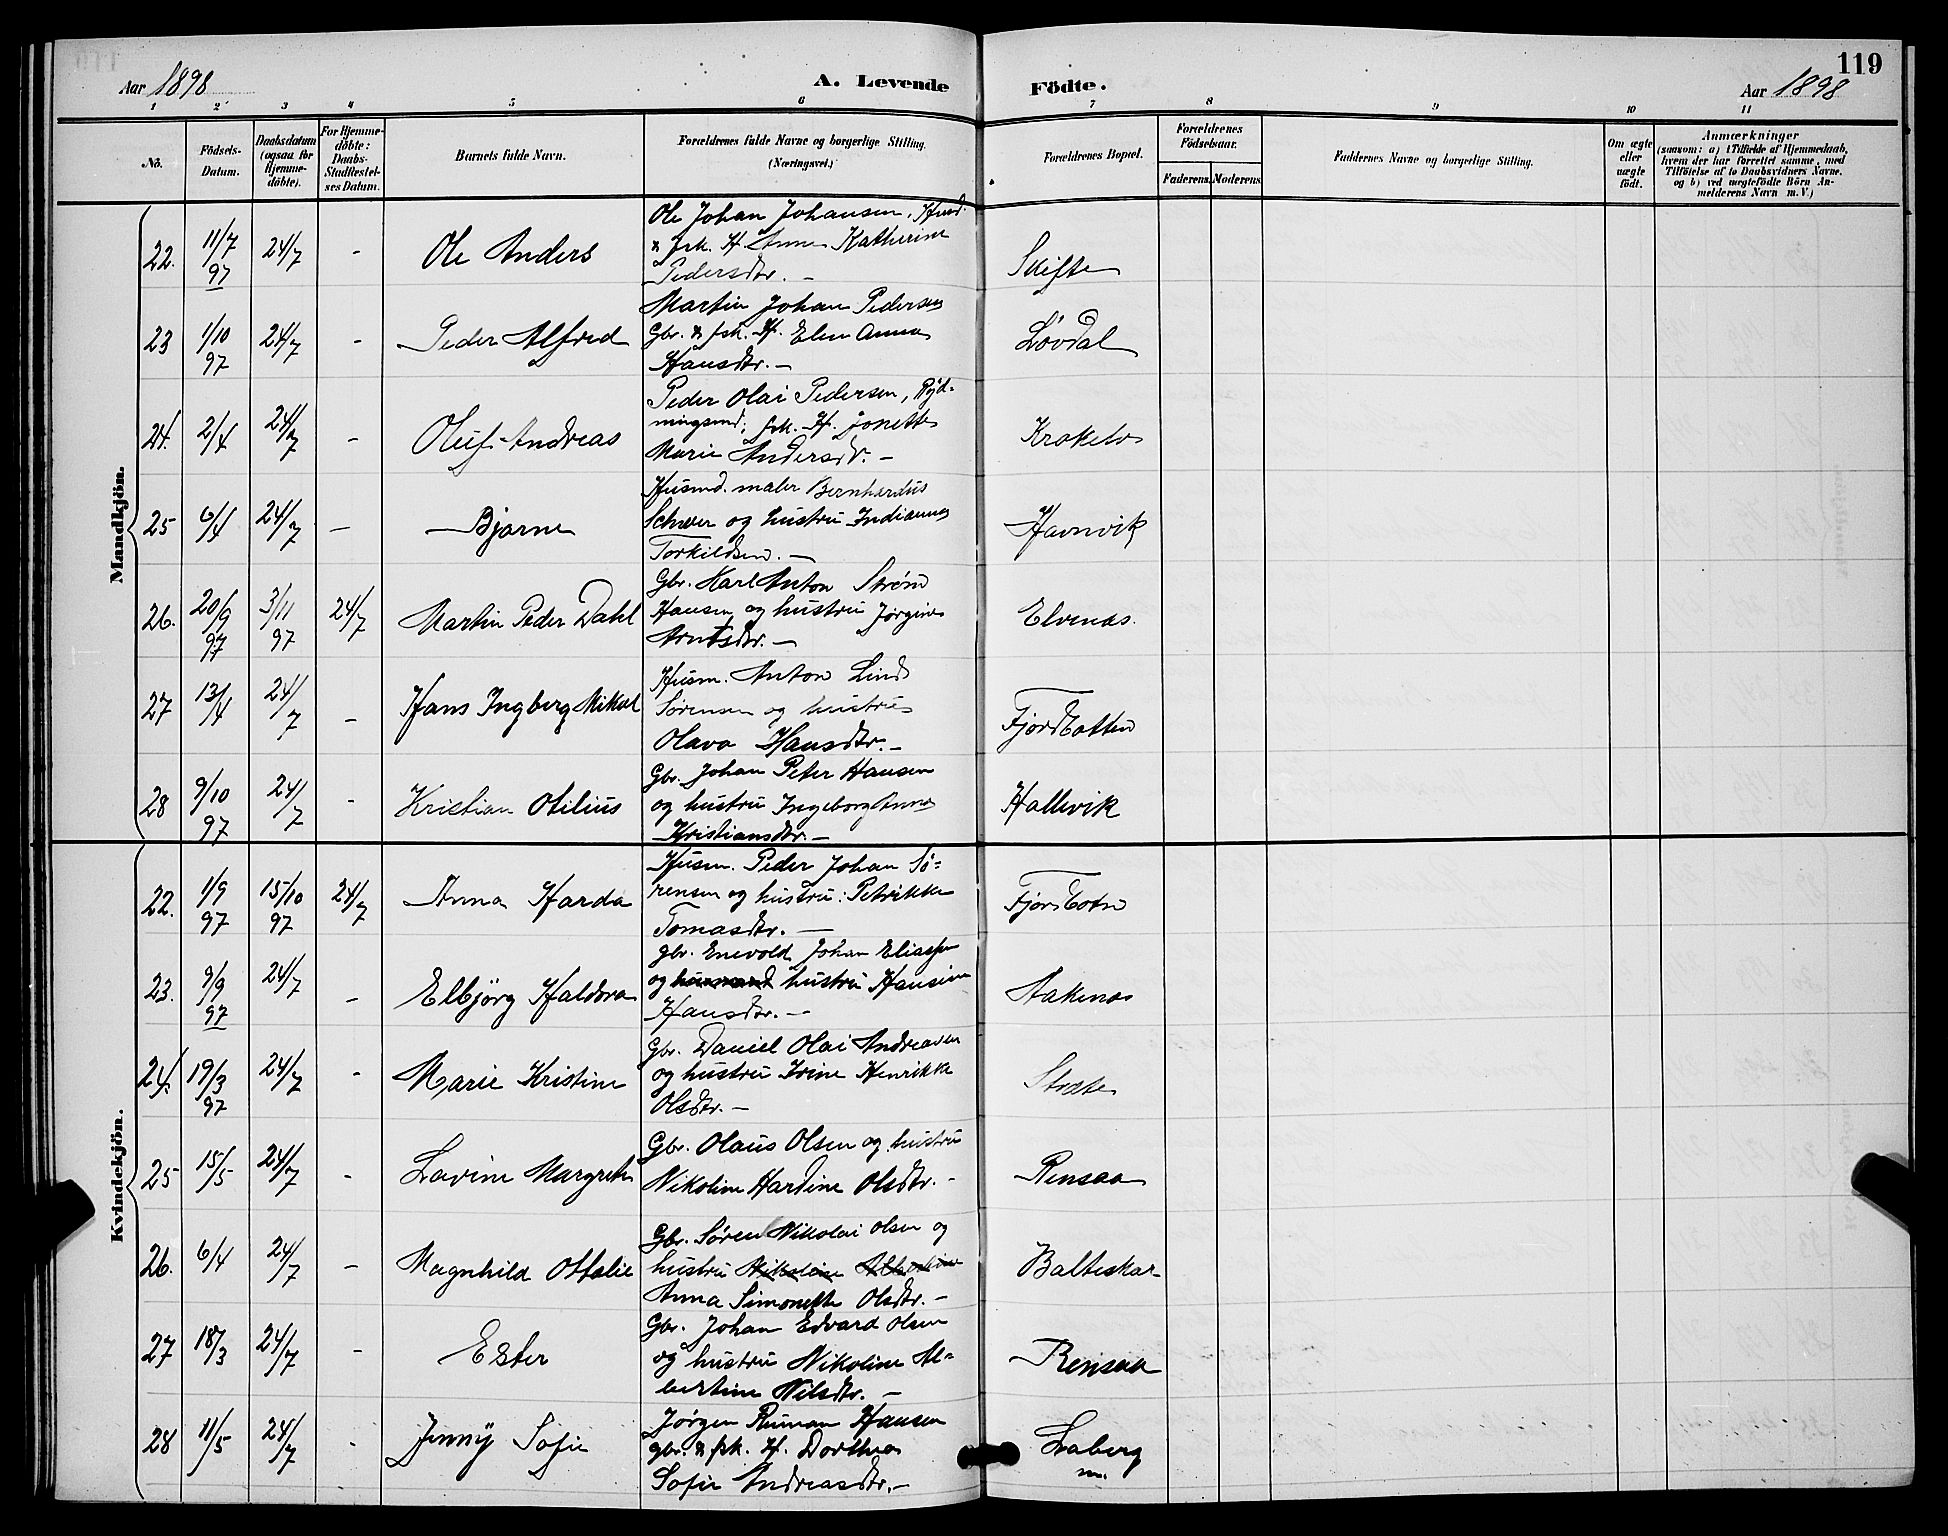 119
Aar 1898
A. Levende Födte.
Aar 1898
1 2 3 4 5 6 7 8 9 10 11
No.
Födsels-Datum.
Daabsdatum (ogsaa for Hjemmedöbte).
For Hjemmedöbte: Daabs-Stadfæstelses Datum.
Barnets fulde Navn.
Forældrenes fulde Navne og borgerlige Stilling. (Næringsvei.)
Forældrenes Bopæl.
Forældrenes Födselsaar.
Faderens. Moderens.
Faddernes Navne og borgerlige Stilling.
Om ægte eller uægte födt.
Anmærkninger
(saasom: a) i Tilfælde af Hjemmedaab, hvem der har forrettet samme, med Tilföielse af to Daabsvidners Navne, og b) ved uægtefödte Börn Anmelderens Navn m. V.)
Mandkjön.
22. 11/7 97 24/7 - Ole Anders
Ole Johan Johansen, Husd.
& frk. H. Anne Katherine
Pedersdtr. —
Skifte
23 1/10 97 24/7 - Peder Alfred
Martin Johan Pedersen
Gbr. & frk. H. Elen Anna
Hansdtr. —
Løvdal
24. 2/4 24/7 - Oluf Andreas
Peder Olai Pedersen, Ryd-
ningsmd; frk. H. Jonette
Marie Andersdtr. —
Krokelv
25 6/4 24/7 — Bjarne
Husmd. maler Bernhardus
Scheer og hustru Indianna
Torkildsen. —
Havnvik
26. 20/9 97 3/11 97 24/7 Martin Peder Dahl
Gbr. Karl Anton Strøm
Hansen og hustru Jørgine
Arntsdtr. —
Elvenæs.
27 13/4 24/7 - Hans Ingberg Mikal
Husm. Anton Lind
Sørensen og hustru
Olava Hansdtr. —
Fjordbotten
28 9/10 97 24/7 - Kristian Otilius
Gbr. Johan Peter Hansen
og hustru Ingeborg Anna
Kristiansdtr. —
Hallevik
Kvindekjön.
22. 1/9 97 15/10 97 24/7 Anna Harda
Husm. Peder Johan Sø-
rensen og hustru: Petrikke
Tomasdtr. —
Fjordbotn
23. 9/9 97 24/7 - Elbjörg Haldora
gbr. Enevold Johan Eliassen
og husmand hustru Hansine
Hansdtr. —
Aakenes
24. 19/3 97 24/7 - Marie Kristine
Gbr. Daniel Olai Andreasen
og hustru Irine Henrikke
Olsdtr. —
Stræte
25 15/5 24/7 - Lavine Margrete
Gbr. Olaus Olsen og hustru
Nikoline Hartine Olsdtr. -
Rensaa
26. 6/4 24/7 - Magnhild Ottalie
Gbr. Søren Nikolai Olsen og
hustru Nikoline Albertine
Anna Simonette Olsdtr. -
Balteskar
27 18/3 24/7 - Ester
Gbr. Johan Edvard Olsen
og hustru Nikoline Al-
bertine Nilsdtr. —
Rensaa
28 11/5 24/7 - Jenny Sofie
Jørgen Ruman Hansen
gbr. & frk. H. Dorthea
Sofie Andreasdtr. —
Laberg
m.